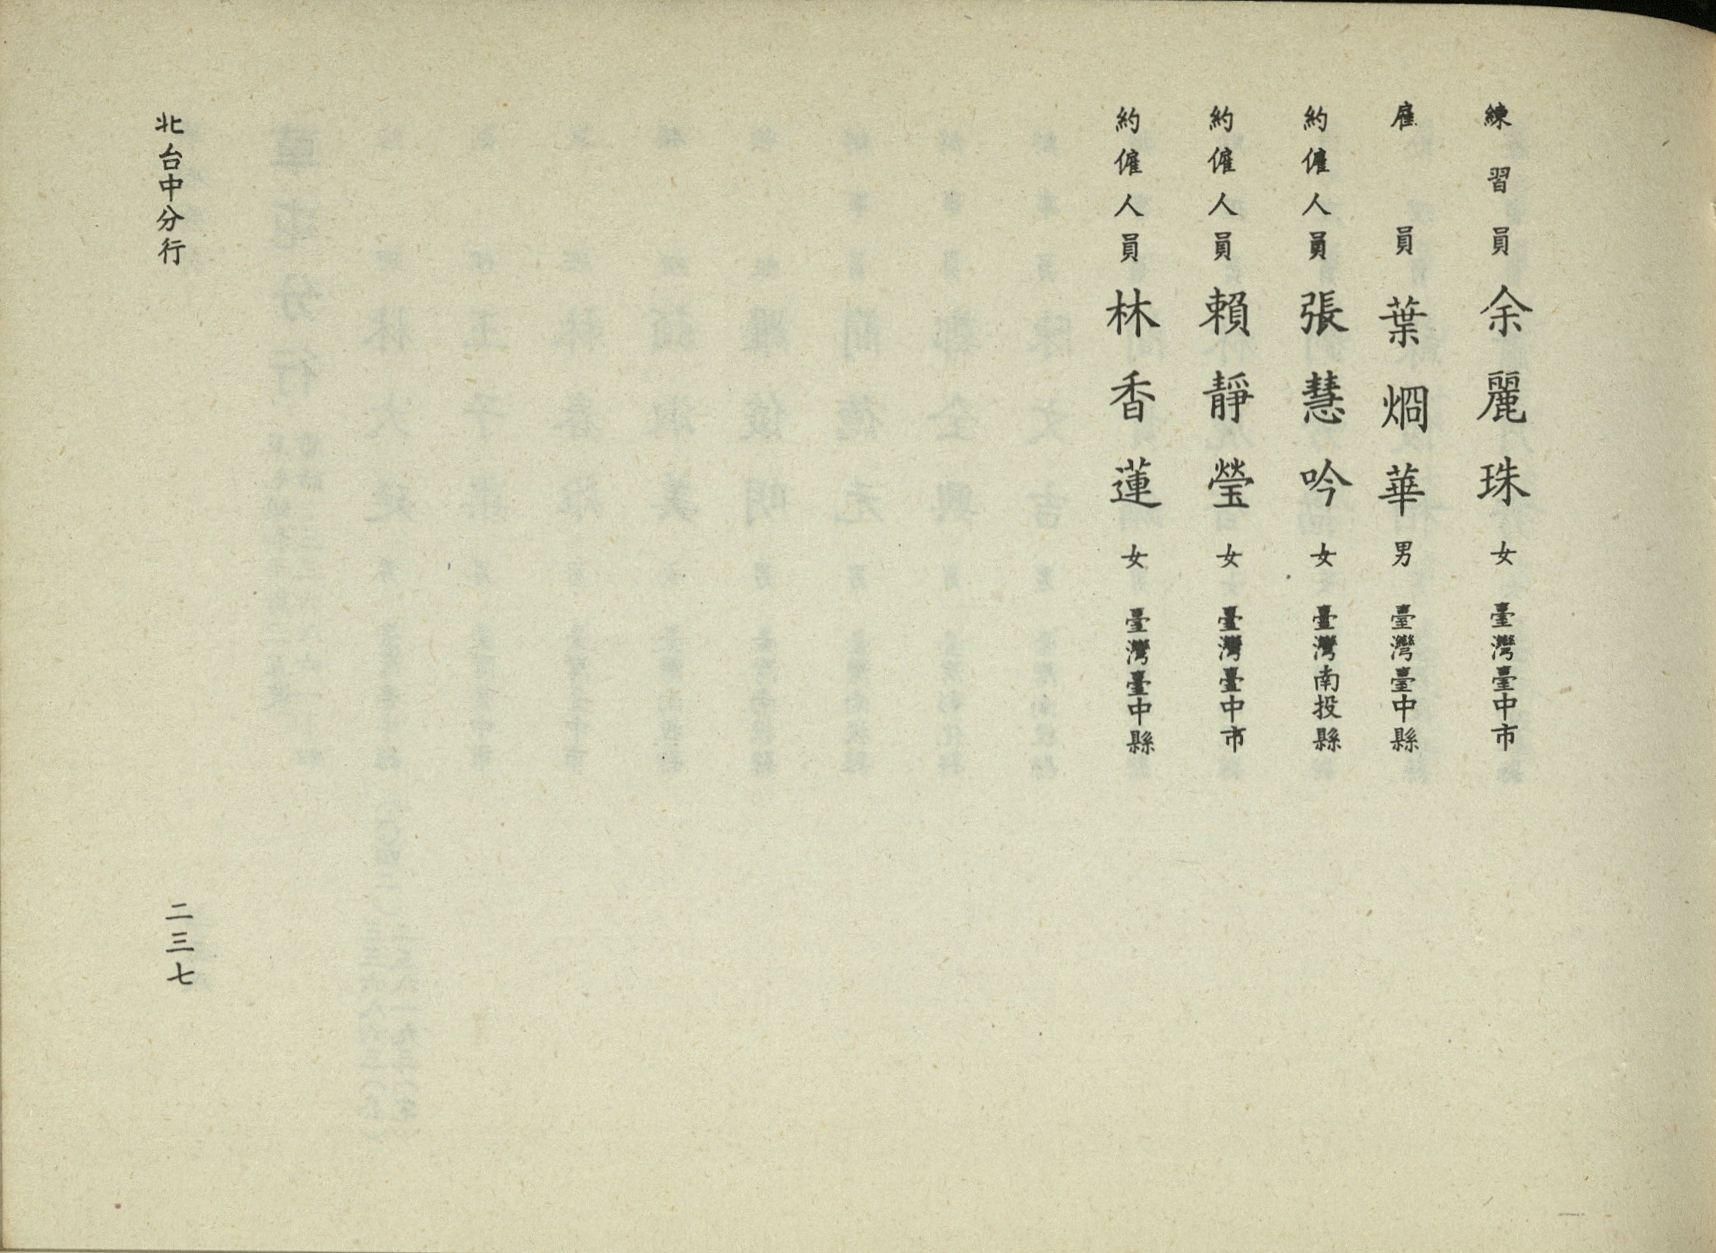 練習員 余麗珠 女 臺灣臺中市
雇員 葉烱華 男 臺灣臺中縣
約僱人員 張慧吟 女 臺灣南投縣
約僱人員 賴靜瑩 女 臺灣臺中市
約僱人員 林香蓮 女 臺灣臺中縣
北台中分行
二三七